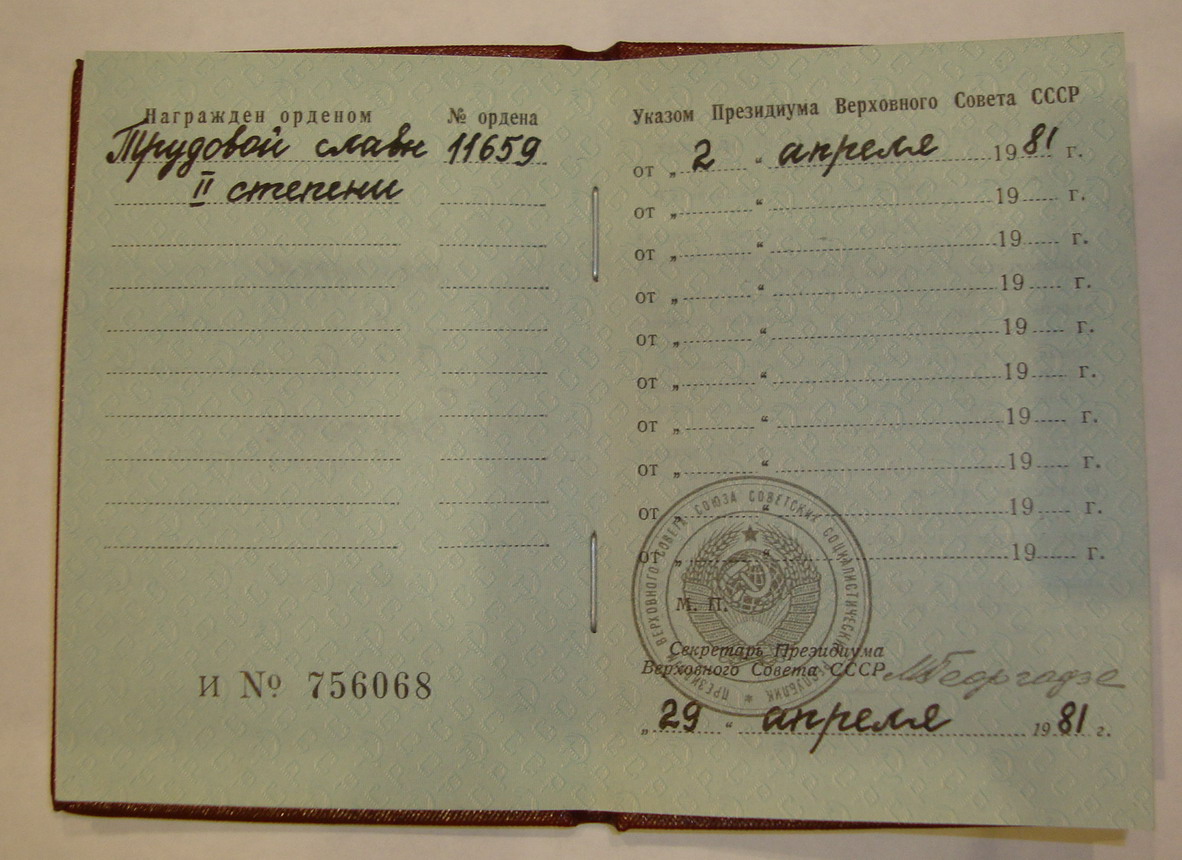 Награжден орденом
№ ордена
Трудовой славы 11659
II степени
И № 756068
Указом Президиума Верховного Совета СССР
от „ 2 “ апреля 19 81 г.
от „ “ 19 г.
от „ “ 19 г.
от „ “ 19 г.
от „ “ 19 г.
от „ “ 19 г.
от „ “ 19 г.
от „ “ 19 г.
от „ “ 19 г.
от „ “ 19 г.
ПРЕЗИДИУМ ВЕРХОВНОГО СОВЕТА СОЮЗА СОВЕТСКИХ СОЦИАЛИСТИЧЕСКИХ РЕСПУБЛИК
М. П.
Секретарь Президиума
Верховного Совета СССР М Георгадзе
„ 29 “ апреля 19 81 г.